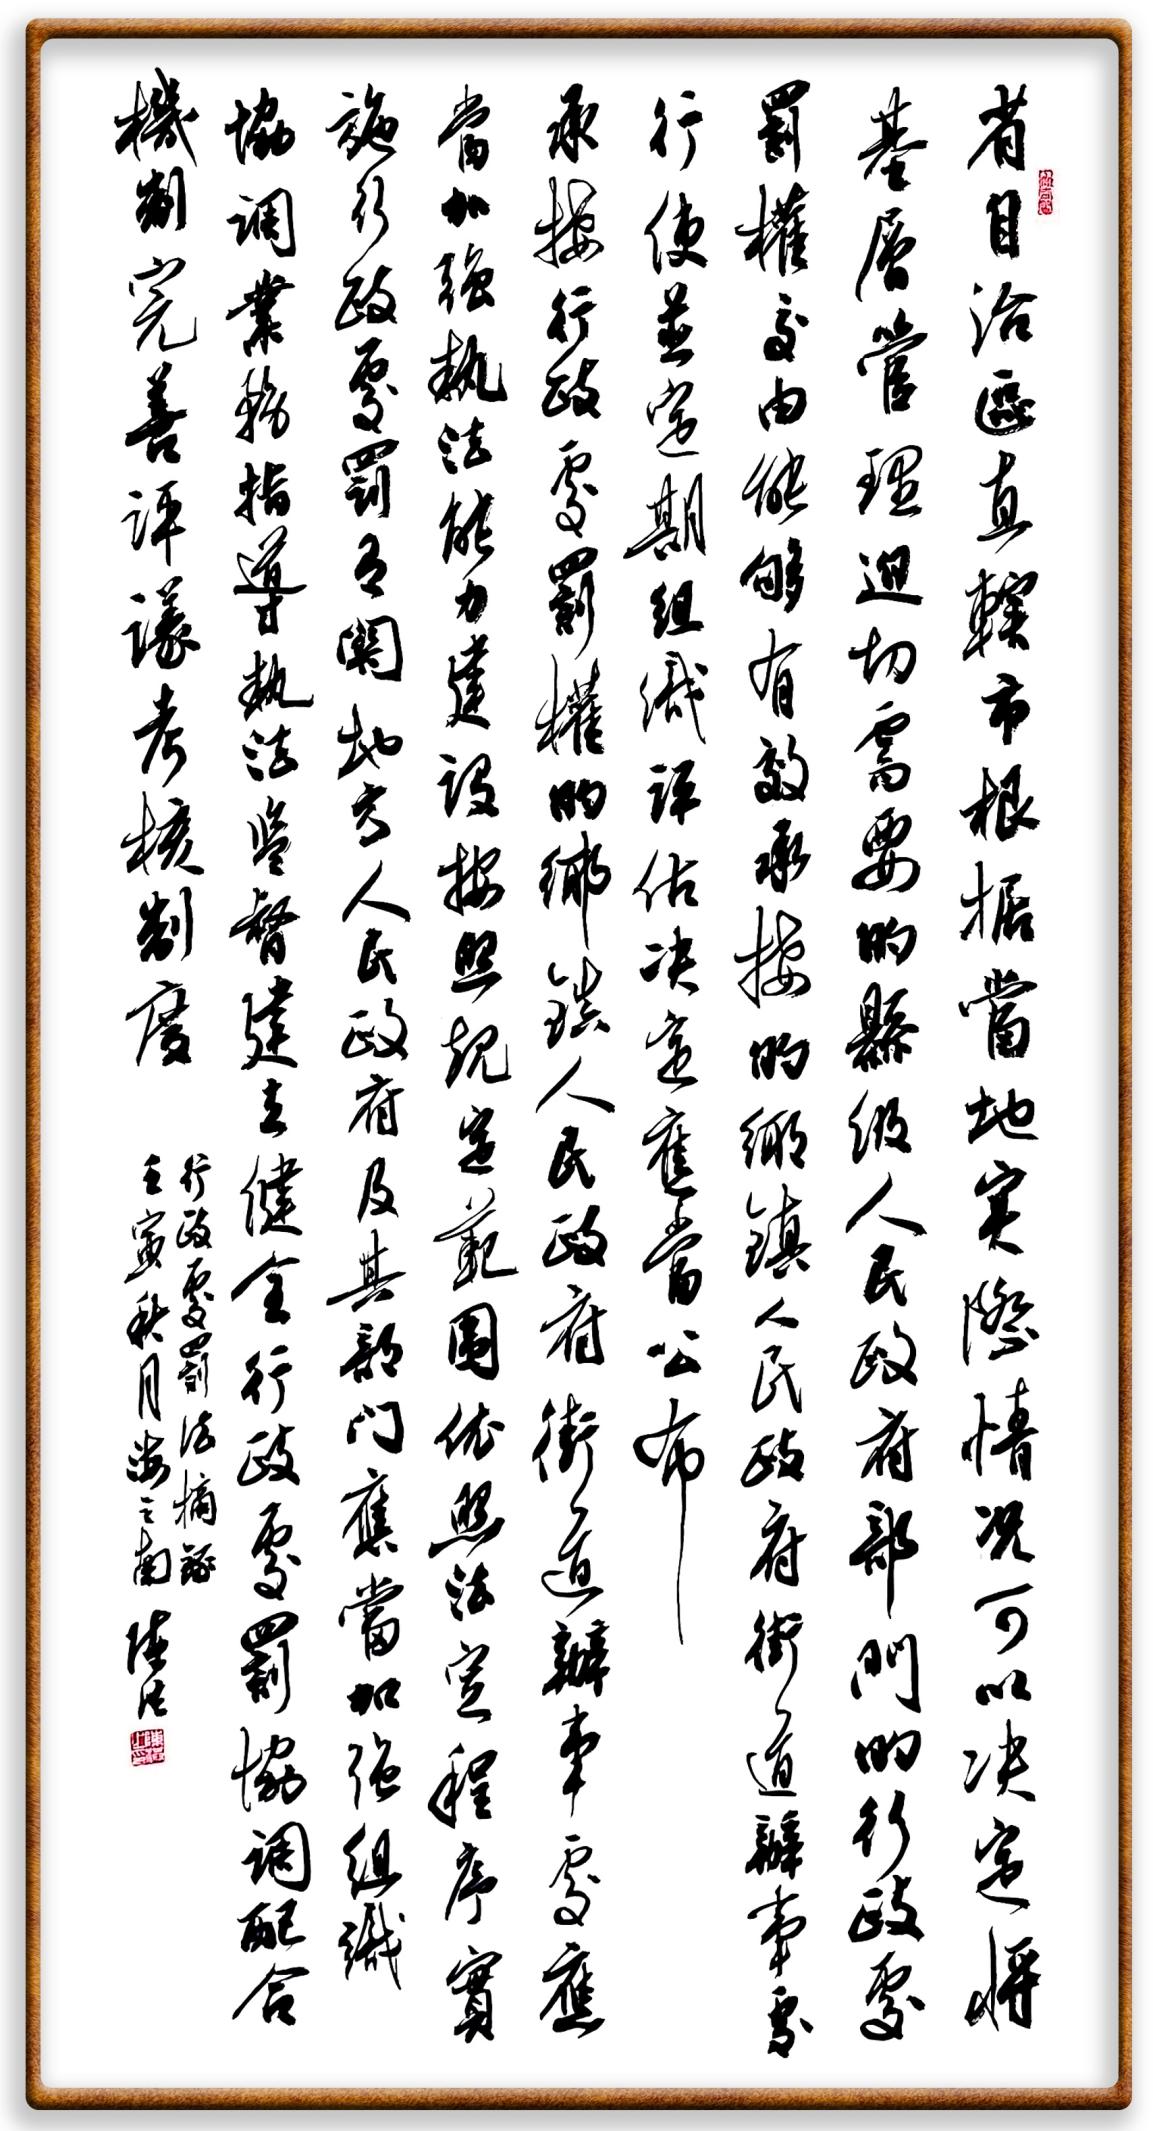 省自治區直轄市根据當地实際情况可以决定将
基層管理迫切需要的縣级人民政府部門的行政處
罰權交由能够有效承接的鄉鎮人民政府街道辦事處
行使並定期組織評估决定應當公布
承接行政處罰權的鄉鎮人民政府街道辦事處應
當加强執法能力建設按照规定範圍依照法定程序實
施行政處罰有關地方人民政府及其部门應當加强組織
協调業務指導執法監督建立健全行政處罰協调配合
機制完善评議考核制度
行政處罰法摘録
壬寅秋月海之南